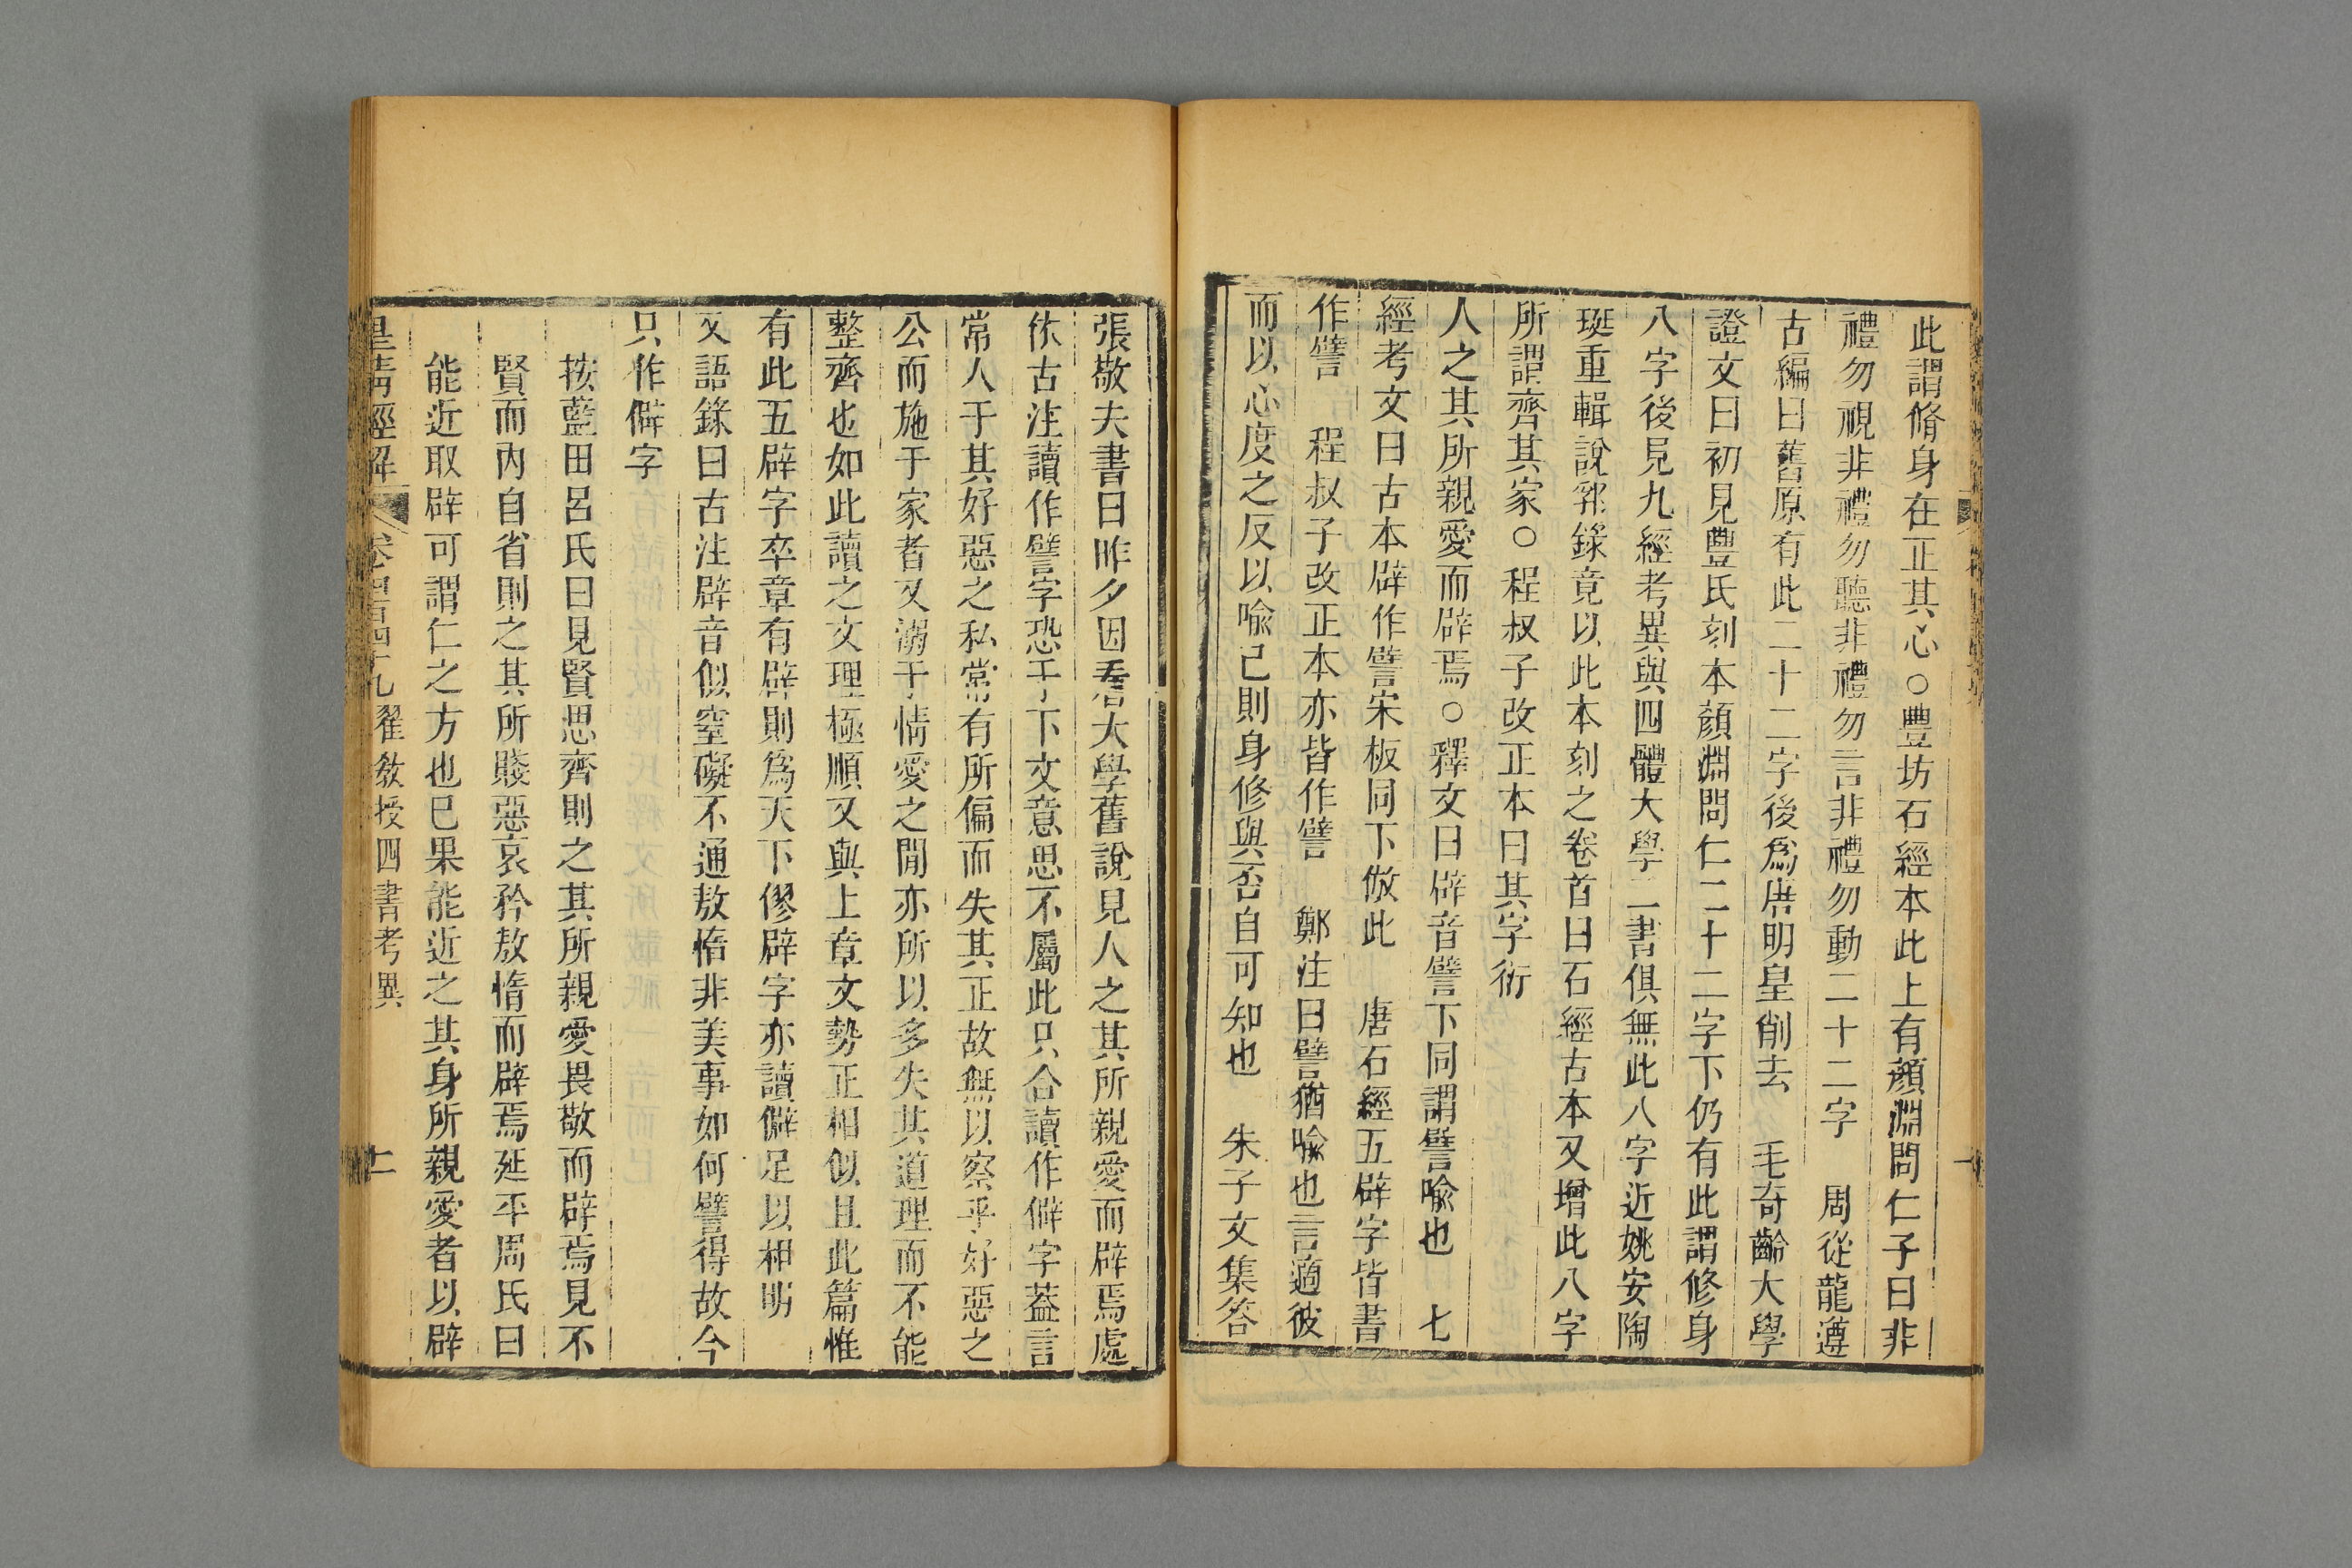 此謂脩身在正其心○豐坊石經本此上有顏淵問仁子曰非
禮勿視非禮勿聽非禮勿言非禮勿動二十二字　周從龍遵
古編曰舊原有此二十二字後爲唐明皇削去　毛奇齡大學
證文曰初見豐氏刻本顏淵問仁二十二字下仍有此謂修身
八字後見九經考異與四體大學二書俱無此八字近姚安陶
珽重輯說郛錄竟以此本刻之卷首曰石經古本又增此八字
所謂齊其家○程叔子改正本曰其字衍
人之其所親愛而辟焉○釋文曰辟音譬下同謂譬喻也　七
經考文曰古本辟作譬宋板同下倣此　唐石經五辟字皆書
作譬　程叔子改正本亦皆作譬　鄭注曰譬猶喻也言適彼
而以心度之反以喻己則身修與否自可知也　朱子文集答
張敬夫書曰昨夕因看大學舊說見人之其所親愛而辟焉處
依古注讀作譬字恐于下文意思不屬此只合讀作僻字蓋言
常人于其好惡之私常有所偏而失其正故無以察乎好惡之
公而施于家者又溺于情愛之閒亦所以多失其道理而不能
整齊也如此讀之文理極順又與上章文勢正相似且此篇惟
有此五辟字卒章有辟則爲天下僇辟字亦讀僻足以相明
又語錄曰古注辟音似窒礙不通敖惰非美事如何譬得故今
只作僻字
按藍田呂氏曰見賢思齊則之其所親愛畏敬而辟焉見不
賢而內自省則之其所賤惡哀矜敖惰而辟焉延平周氏曰
能近取辟可謂仁之方也已果能近之其身所親愛者以辟
皇清經解　卷四百四十九　翟教授四書考異　十一